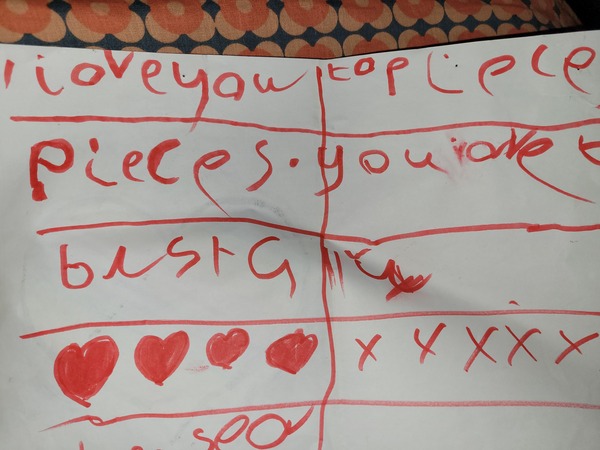 i love you to piece
pieces. you are t
best G
x x x x x